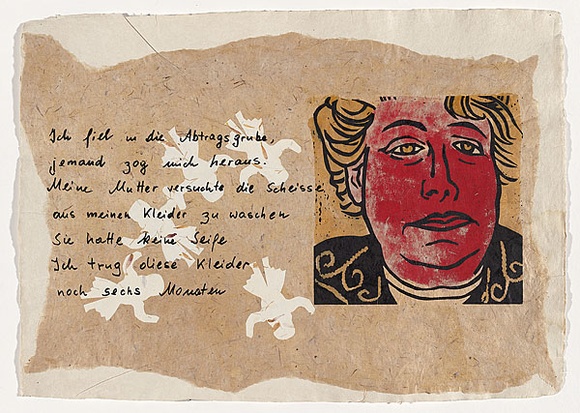 Ich fiel in die Abtragsgrube,
jemand zog mich heraus.
Meine Mutter versuchte die Scheisse
aus meinen Kleider zu waschen
Sie hatte keine Seife
Ich trug diese Kleider
noch sechs Monaten